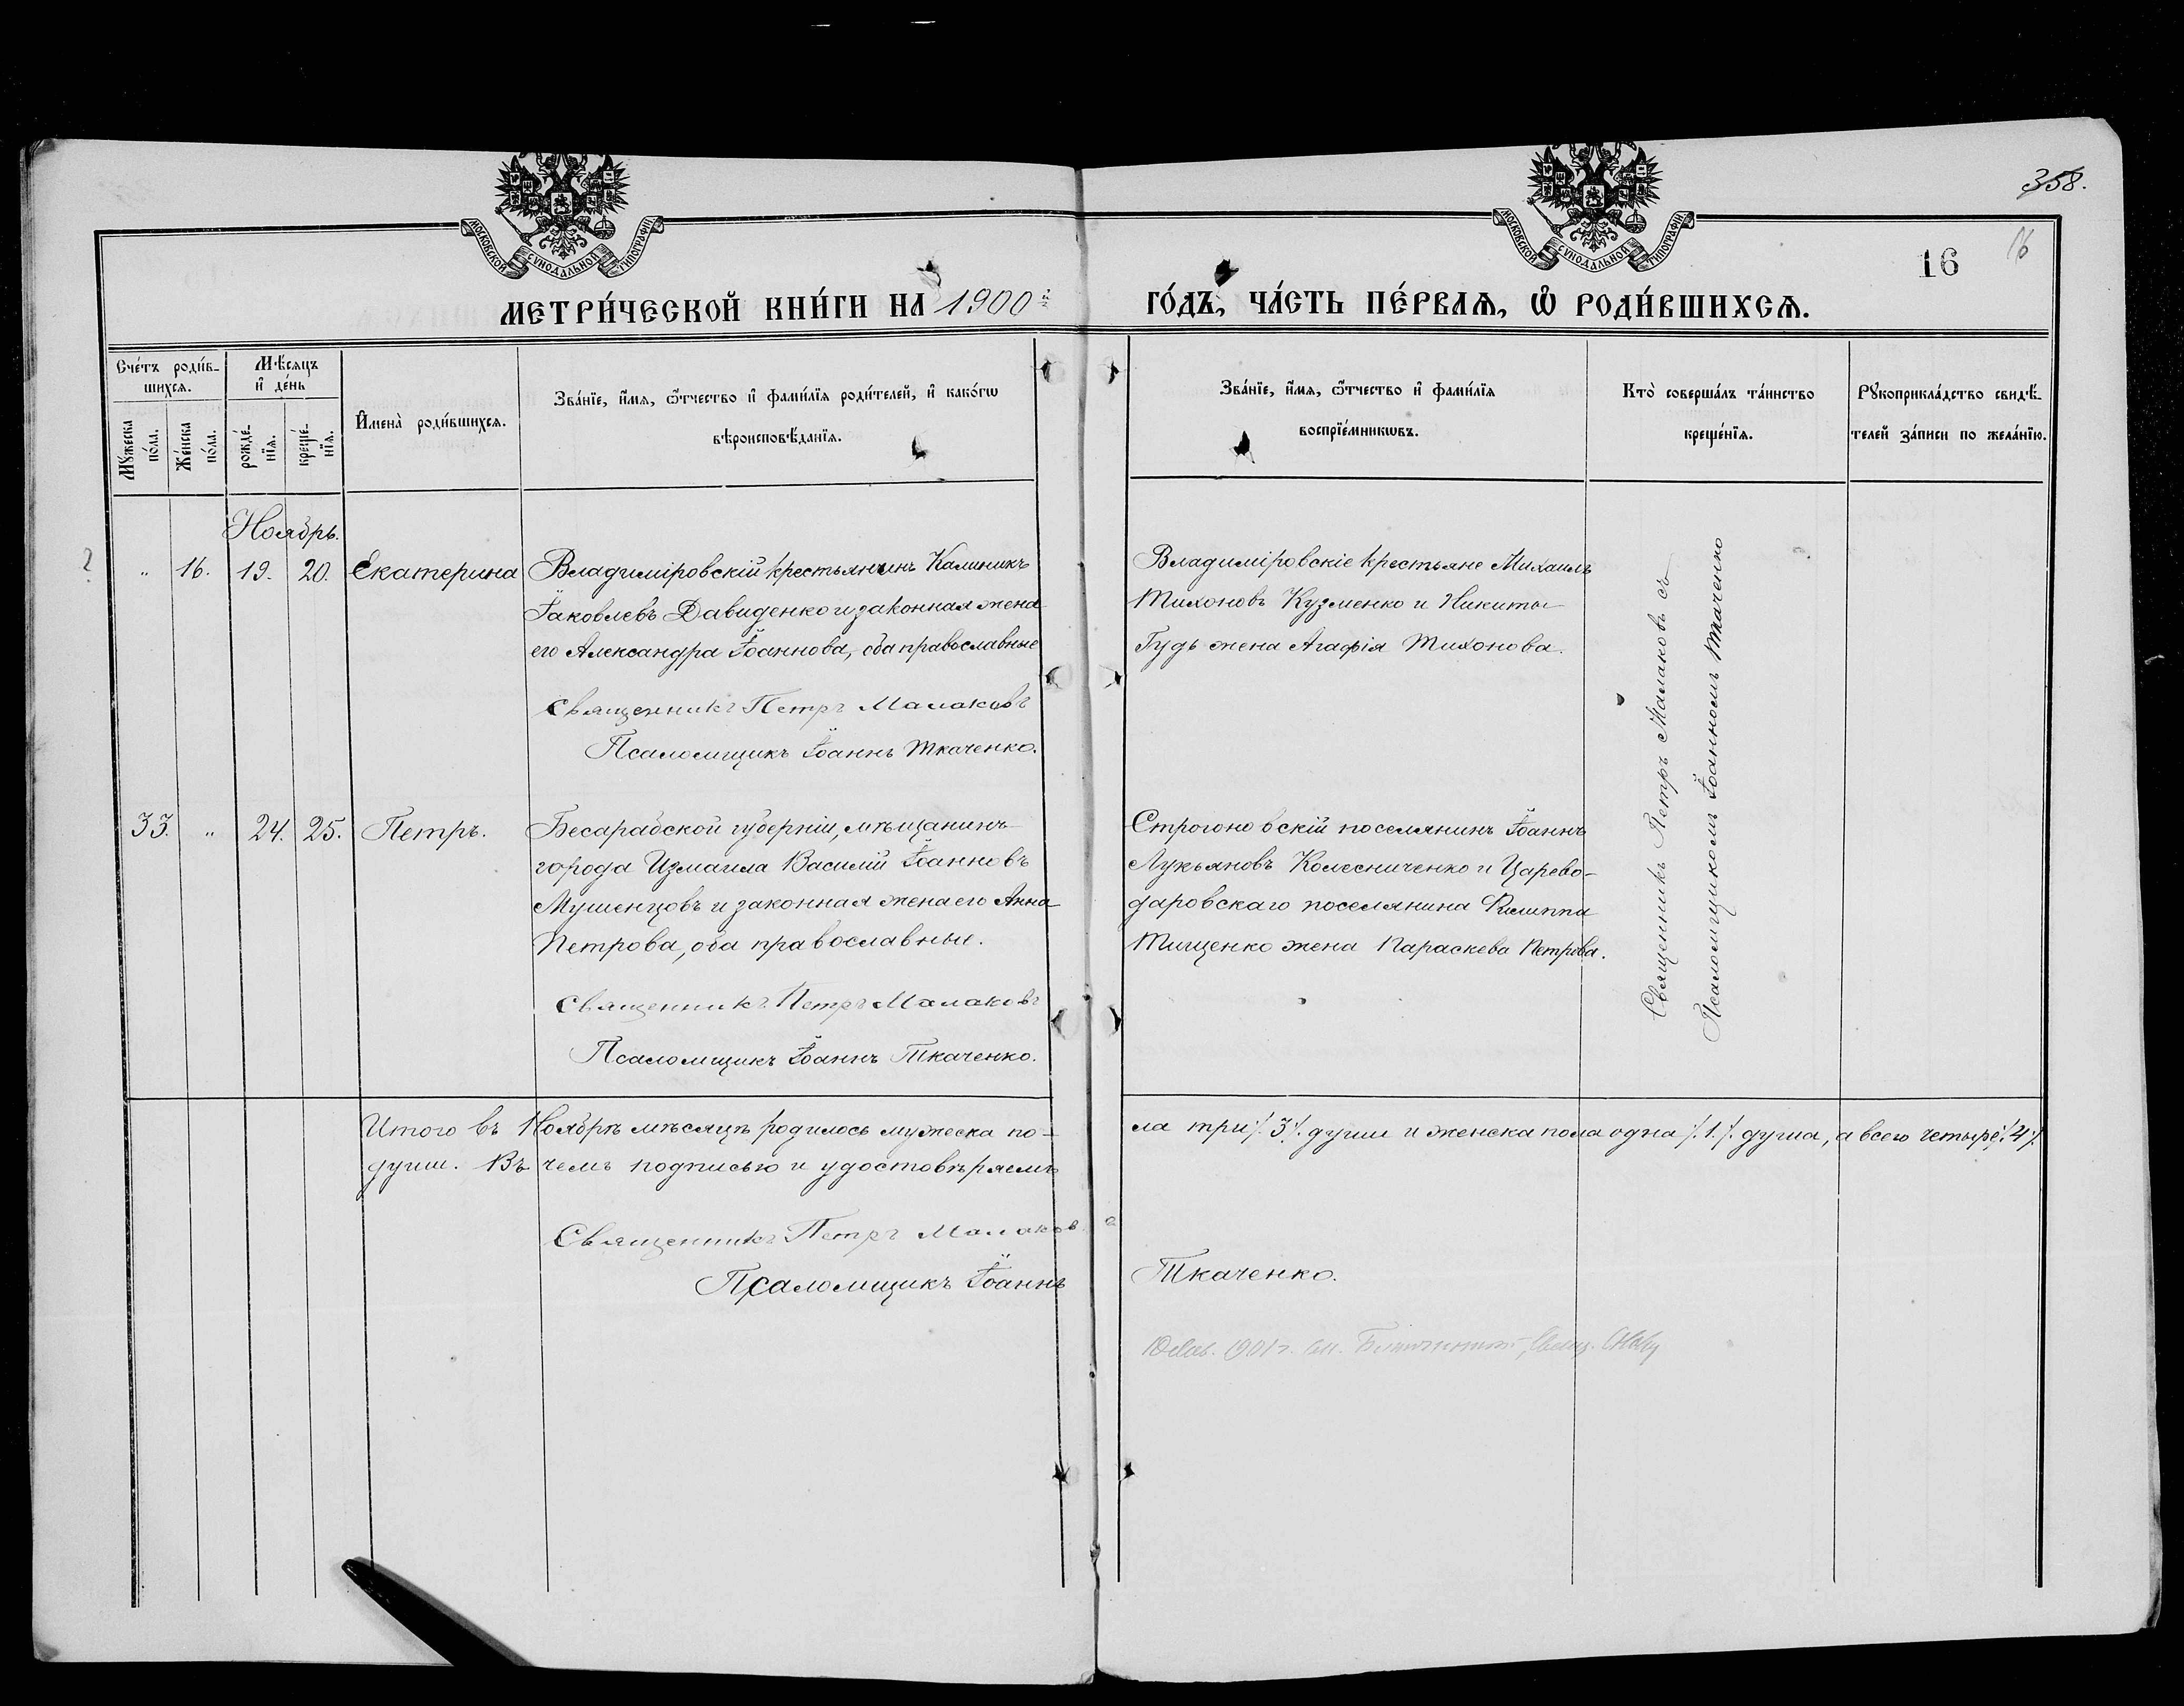 358.
16
16
МОСКОВСКОЙ СУНОДАЛЬНОЙ ТИПОГРАФІИ
МОСКОВСКОЙ СУНОДАЛЬНОЙ ТИПОГРАФІИ
МЕТРИ́ЧЕСКОЙ КНИ́ГИ НА 1900й ГО́ДЪ, ЧА́СТЬ ПЕ́РВАѦ, Ѡ҆ РОДИ́ВШИХСѦ.
Сче́тъ роди́в-
шихсѧ.
Мꙋжеска по́ла.
Же́нска по́ла.
Мѣ́сѧцъ
и҆ де́нь
рожде́-
нїѧ.
креще́-
нїѧ.
И҆мена̀ роди́вшихсѧ.
Зва́нїе, и҆́мѧ, ѻ҆́тчество и҆ фами́лїѧ роди́телей, и҆ како́гѡ
вѣроисповѣ́данїѧ.
Зва́нїе, и҆́мѧ, ѻ҆́тчество и҆ фами́лїѧ
воспрїе́мникѡвъ.
Кто̀ соверша́лъ та́инство
креще́нїѧ.
Рꙋкоприкла́дство свидѣ́-
телей за́писи по жела́нїю.
Ноябрь.
? „ 16. 19. 20. Екатерина
Владиміровскій крестьянинъ Калиникъ
Іаковлевъ Давиденко и законная жена
его Александра Іоаннова, оба православные
Священникъ Петръ Малаковъ
Псаломщикъ Іоаннъ Ткаченко.
Владиміровскіе крестьяне Михаилъ
Тихоновъ Кузменко и Никиты
Гудь жена Агафія Тихонова.
Священникъ Петръ Малаковъ съ
Псаломщикомъ Іоанномъ Ткаченко
33. „ 24. 25. Петръ.
Бесарабской губерніи, мѣщанинъ
города Измаила Василій Іоанновъ
Мушенцовъ и законная жена его Анна
Петрова, оба православные.
Священникъ Петръ Малаковъ
Псаломщикъ Іоаннъ Ткаченко.
Строгоновскій поселянинъ Іоаннъ
Лукьяновъ Колесниченко и Царево-
даровскаго поселянина Филиппа
Тищенко жена Параскева Петрова.
Итого въ Ноябрѣ мѣсяцѣ родилось мужеска по-ла три /.3./. души и женска пола одна /.1./. душа, а всего четыре /.4./.
душ. Въ чемъ подписью и удостовѣряемъ
Священникъ Петръ Малаковъ
Псаломщикъ Іоаннъ Ткаченко.
1901 г.